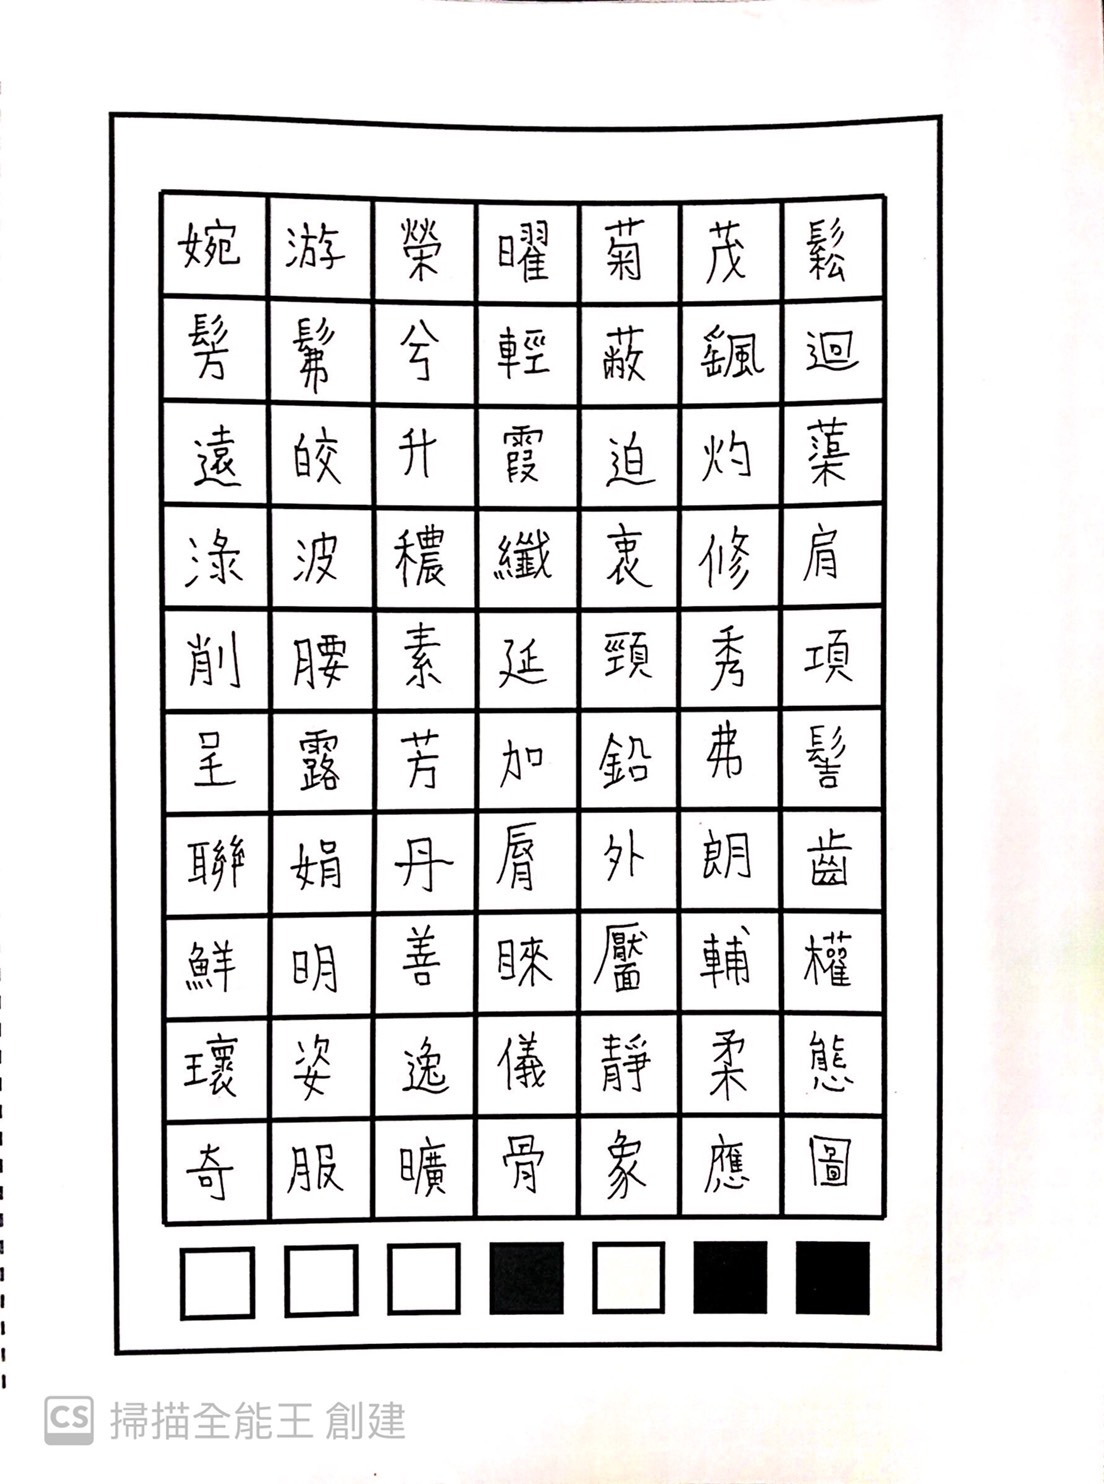 婉游榮曜菊茂鬆
髣髴兮輕蔽飄迴
遠皎升霞迫灼蕖
淥波穠纖衷修肩
削腰素延頸秀項
呈露芳加鉛弗髻
聯娟丹脣外朗齒
鮮明善睞靨輔權
瓌姿逸儀靜柔態
奇服曠骨象應圖
CS 掃描全能王 創建